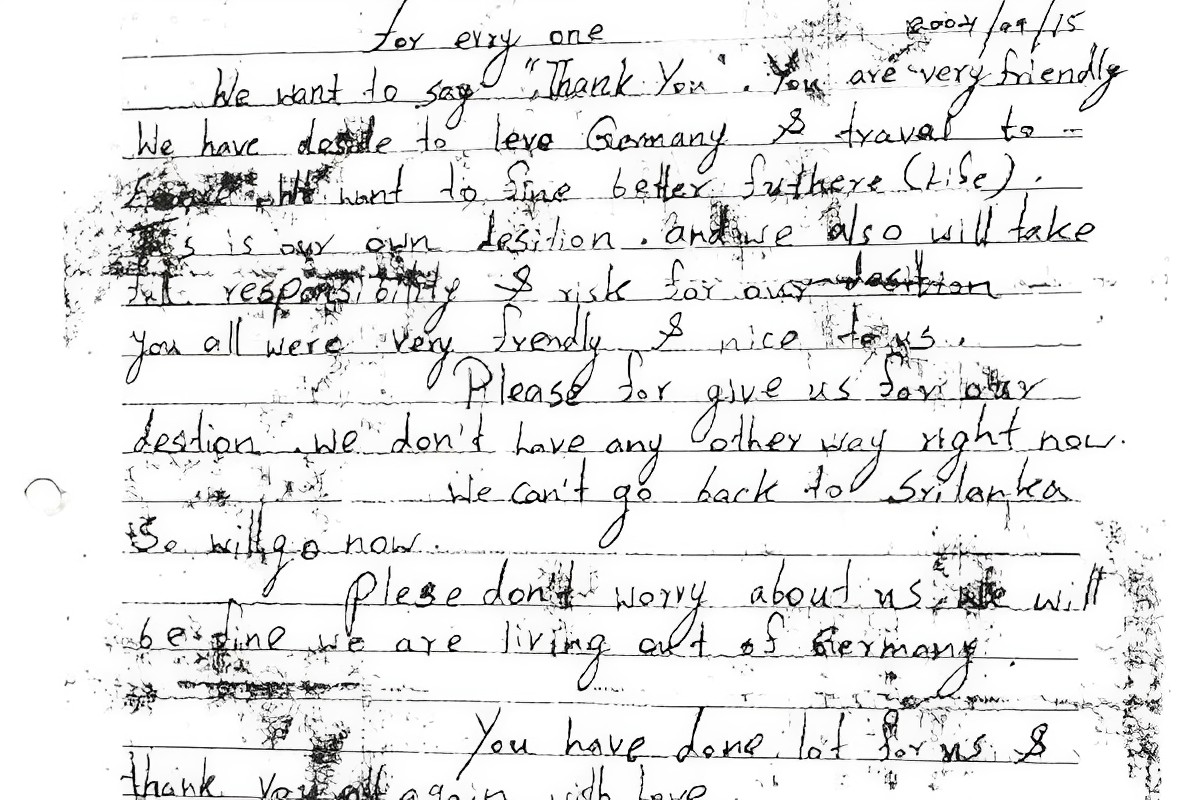 for evry one 2004/09/15
We want to say "Thank You". You are very friendly
We have deside to leve Germany & travel to -
want to fine better futhere (Life).
is our own desition. and we also will take
full responsibility & risk for our desition
you all were very frendly & nice to us.
Please for give us for our
desition. we don't have any other way right now.
We can't go back to Srilanka
So will go now.
Plese don't worry about us. We will
be fine we are living out of Germany.
You have done lot for us &
thank you all again with love.